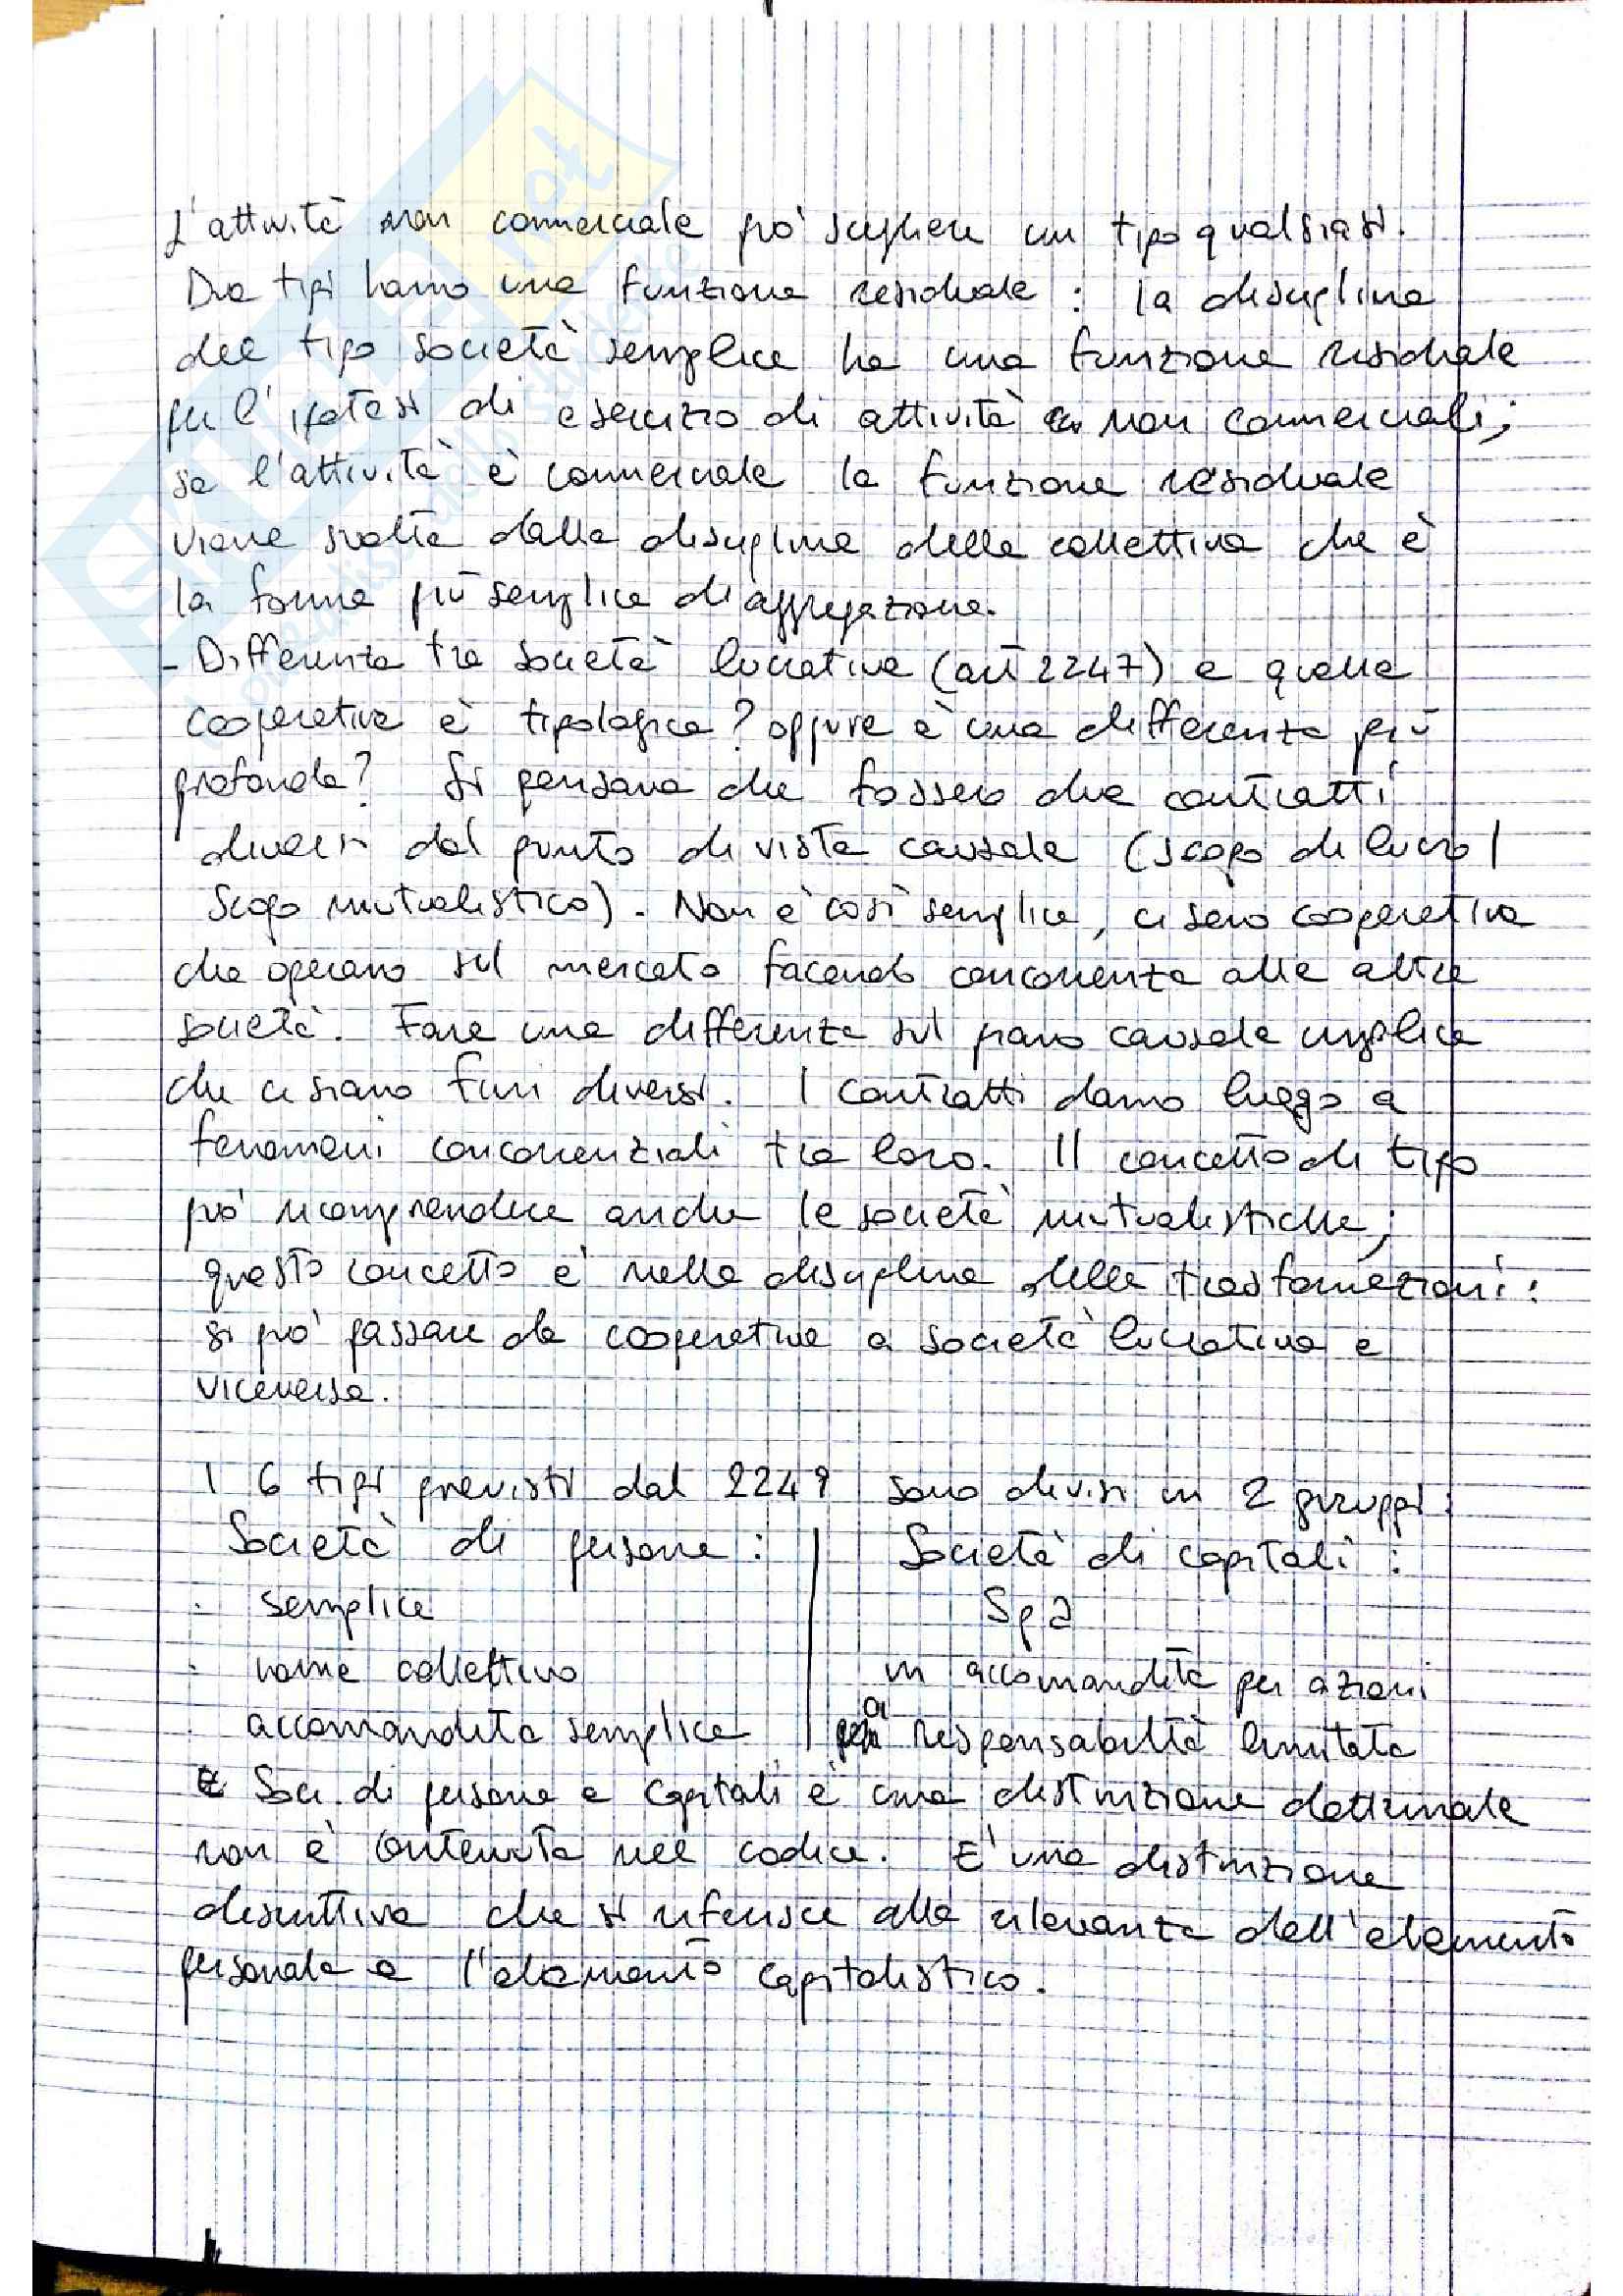 L'attività non commerciale può scegliere un tipo qualsiasi.
Due tipi hanno una funzione residuale : la disciplina
del tipo società semplice ha una funzione residuale
per l'ipotesi di esercizio di attività non commerciali;
se l'attività è commerciale la funzione residuale
viene svolta dalla disciplina della collettiva che è
la forma più semplice di aggregazione.
- Differenza tra società lucrative (art 2247) e quelle
cooperative è tipologica? oppure è una differenza più
profonda? Si pensava che fossero due contratti
diversi dal punto di vista causale (scopo di lucro /
scopo mutualistico). Non è così semplice, ci sono cooperative
che operano sul mercato facendo concorrenza alle altre
società. Fare una differenza sul piano causale implica
che ci siano fini diversi. I contratti danno luogo a
fenomeni concorrenziali tra loro. Il concetto di tipo
può ricomprendere anche le società mutualistiche;
questo concetto è nella disciplina delle trasformazioni:
si può passare da cooperative a società lucrative e
viceversa.
I 6 tipi previsti dal 2249 sono divisi in 2 gruppi:
Società di persone : | Società di capitali :
· semplice Spa
· nome collettivo in accomandita per azioni
· accomandita semplice a responsabilità limitata
Soc. di persone e capitali è una distinzione dottrinale
non è contenuta nel codice. E' una distinzione
descrittiva che si riferisce alla rilevanza dell'elemento
personale e l'elemento capitalistico.